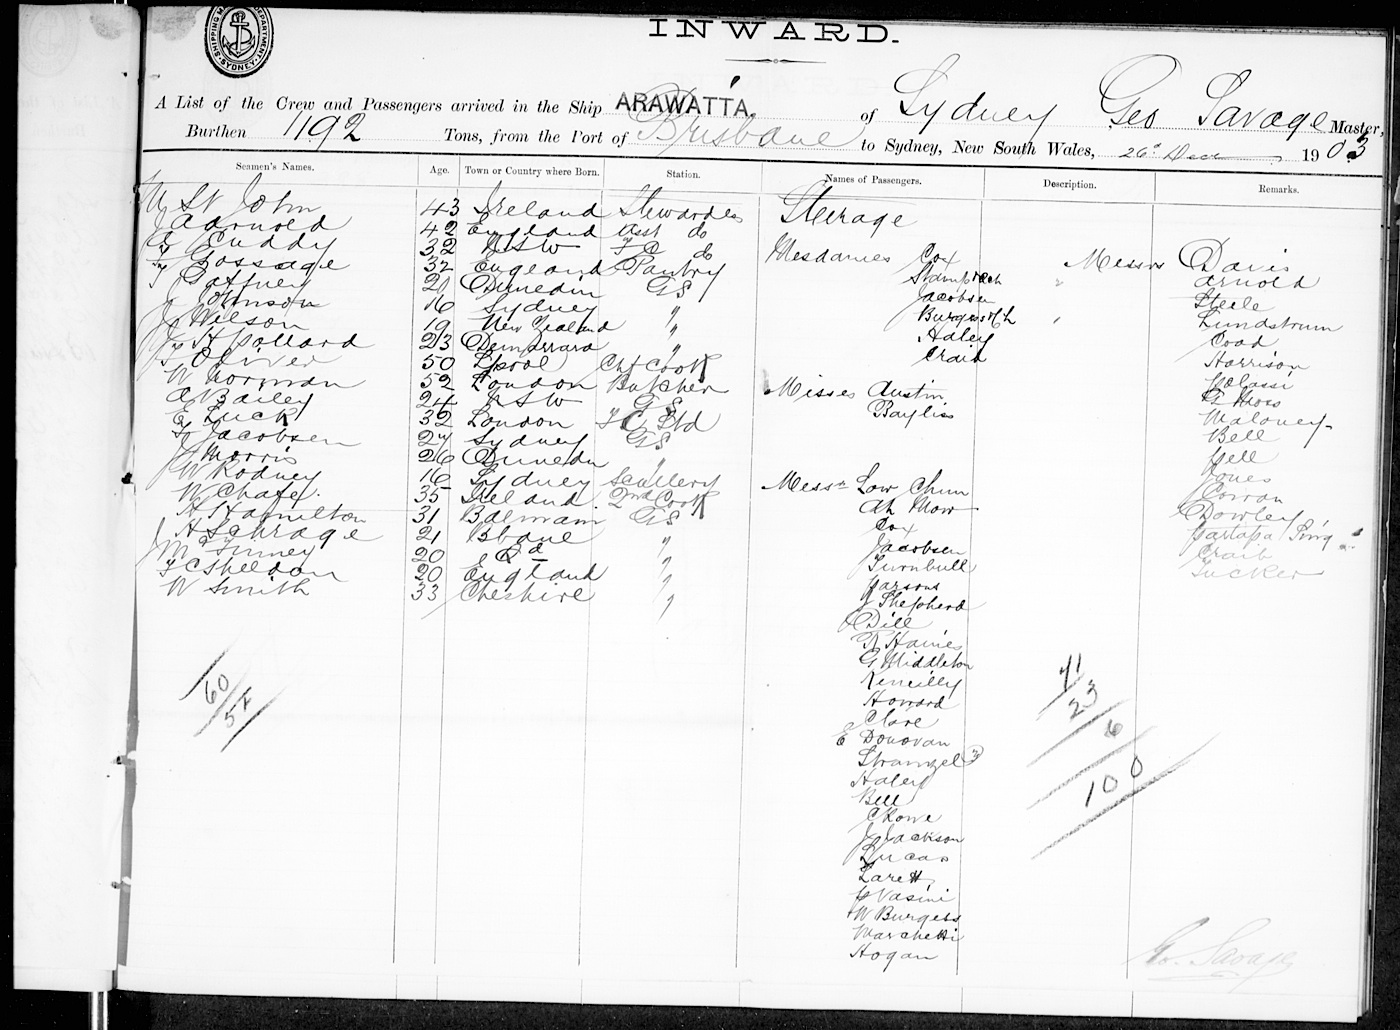 SHIPPING MASTER'S DEPARTMENT · SYDNEY ·
INWARD.
A List of the Crew and Passengers arrived in the Ship ARAWATTA of Sydney Geo Savage Master,
Burthen 1192 Tons, from the Port of Brisbane to Sydney, New South Wales, 26th Decr 1903
Seamen's Names. Age. Town or Country where Born. Station. Names of Passengers. Description. Remarks.
M St John 43 Ireland Stewardess
J Aarnold 42 England Asst do
E Cuddy 32 NSW F C do
F Gossage 32 England Pantry
T Gaffney 20 Dunedin GS
J Johnson 16 Sydney "
J Wilson 19 New Zealand "
J H Pollard 23 Demerrara "
F Oliver 50 Lpool Chf Cook
W Norman 52 London Butcher
A Bailey 24 NSW GS
E Luck 32 London F C Std
F Jacobsen 27 Sydney GS
J Morris 26 Dunedin "
W Rodney 16 Sydney Scullery
W Chafe 35 Ireland 2nd Cook
H Hamilton 31 Balmain GS
H Schrage 21 Bbane "
J McFinney 20 Qd "
F C Sheldon 20 England "
W Smith 33 Cheshire "
60
54
Steerage
Mesdames Cox
Jacobsen
Burgess
Haley
Craid
Misses Austin
Bayliss
Messrs Low Chun
Ah How
Cox
Jacobsen
Turnbull
Parsons
J Shepherd
C Dill
R Haines
G Middleton
Keneilly
Howard
Clare
E Donovan
Strangel
Haley
Bell
C Rowe
J Jackson
Lucas
Larett
P Vasini
W Burgess
Marchetti
Hogan
Messrs Davis
Arnold
Steele
Lundstrum
Coad
Harrison
Malassi
G Moss
Maloney
Bell
Yell
Jones
Corran
Dowley
Partapa Sing
Craib
Tucker
71
23
6
100
Geo. Savage